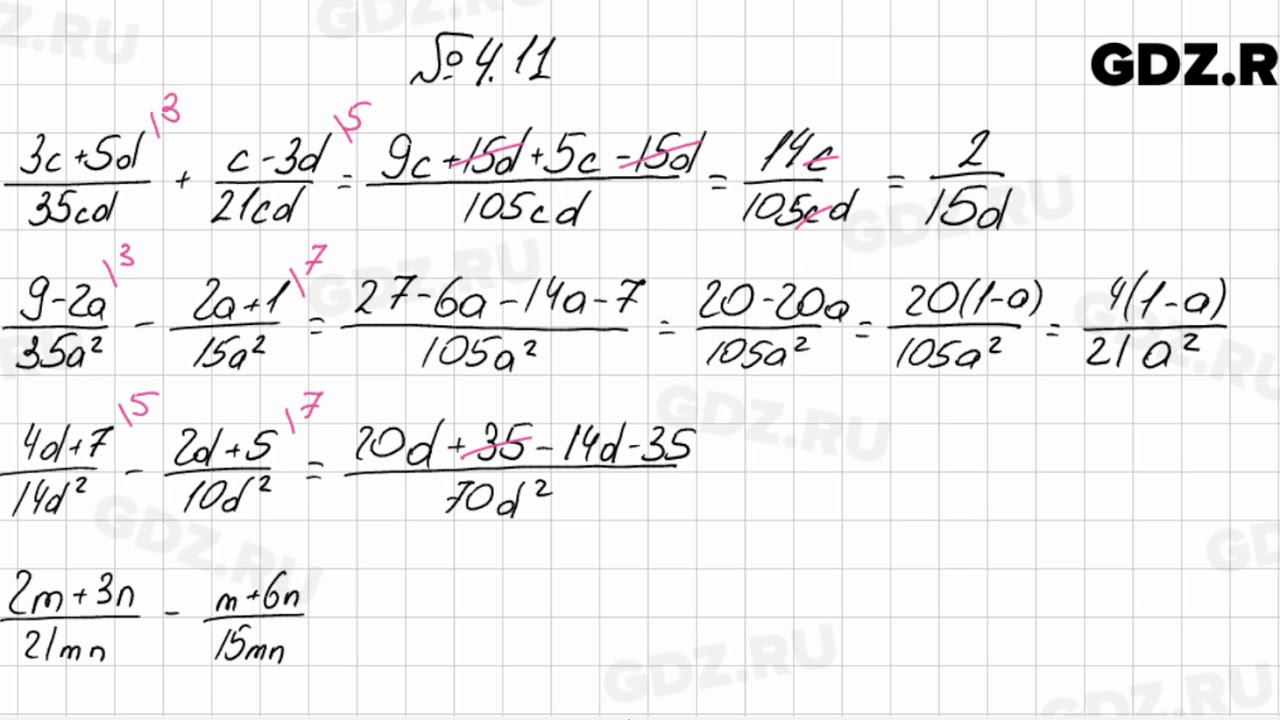 № 4.11
GDZ.R
(3c+5d)/(35cd) \3 + (c-3d)/(21cd) \5 = (9c+15d+5c-15d)/(105cd) = (14c)/(105cd) = 2/(15d)
(9-2a)/(35a²) \3 - (2a+1)/(15a²) \7 = (27-6a-14a-7)/(105a²) = (20-20a)/(105a²) = (20(1-a))/(105a²) = (4(1-a))/(21a²)
(4d+7)/(14d²) \5 - (2d+5)/(10d²) \7 = (20d+35-14d-35)/(70d²)
(2m+3n)/(21mn) - (m+6n)/(15mn)
GDZ.RU